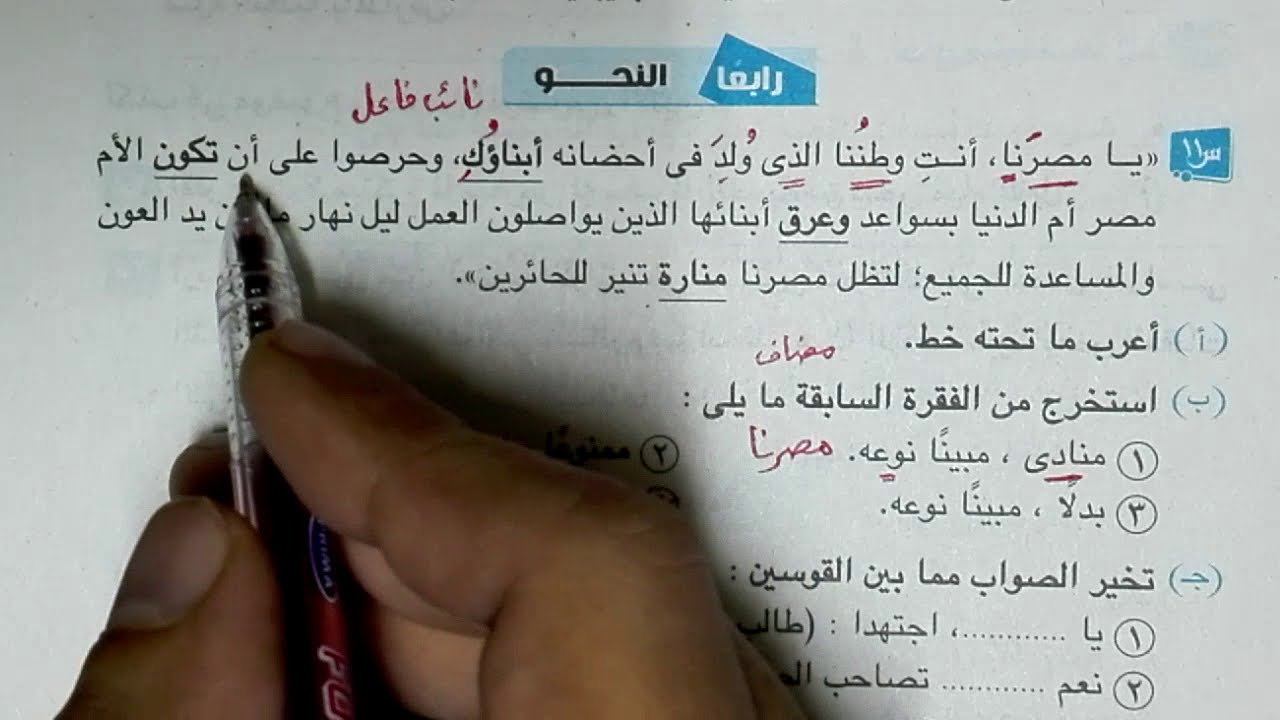 رابعًا النحـــو
نائب فاعل
س١١ «يــا مصرَنا، أنــتِ وطنُنا الذى وُلِدَ فى أحضانه أبناؤُكِ، وحرصوا على أن تكون الأم
مصر أم الدنيا بسواعد وعرق أبنائها الذين يواصلون العمل ليل نهار يد العون
والمساعدة للجميع؛ لتظل مصرنا منارة تنير للحائرين».
(أ) أعرب ما تحته خط.
مضاف
(ب) استخرج من الفقرة السابقة ما يلى :
١ منادى ، مبينًا نوعه. مصرنا ٢ ممنوعًا
٣ بدلًا ، مبينًا نوعه.
(جـ) تخير الصواب مما بين القوسين :
١ يا ............، اجتهدا : (طالب
٢ نعم ............ تصاحب